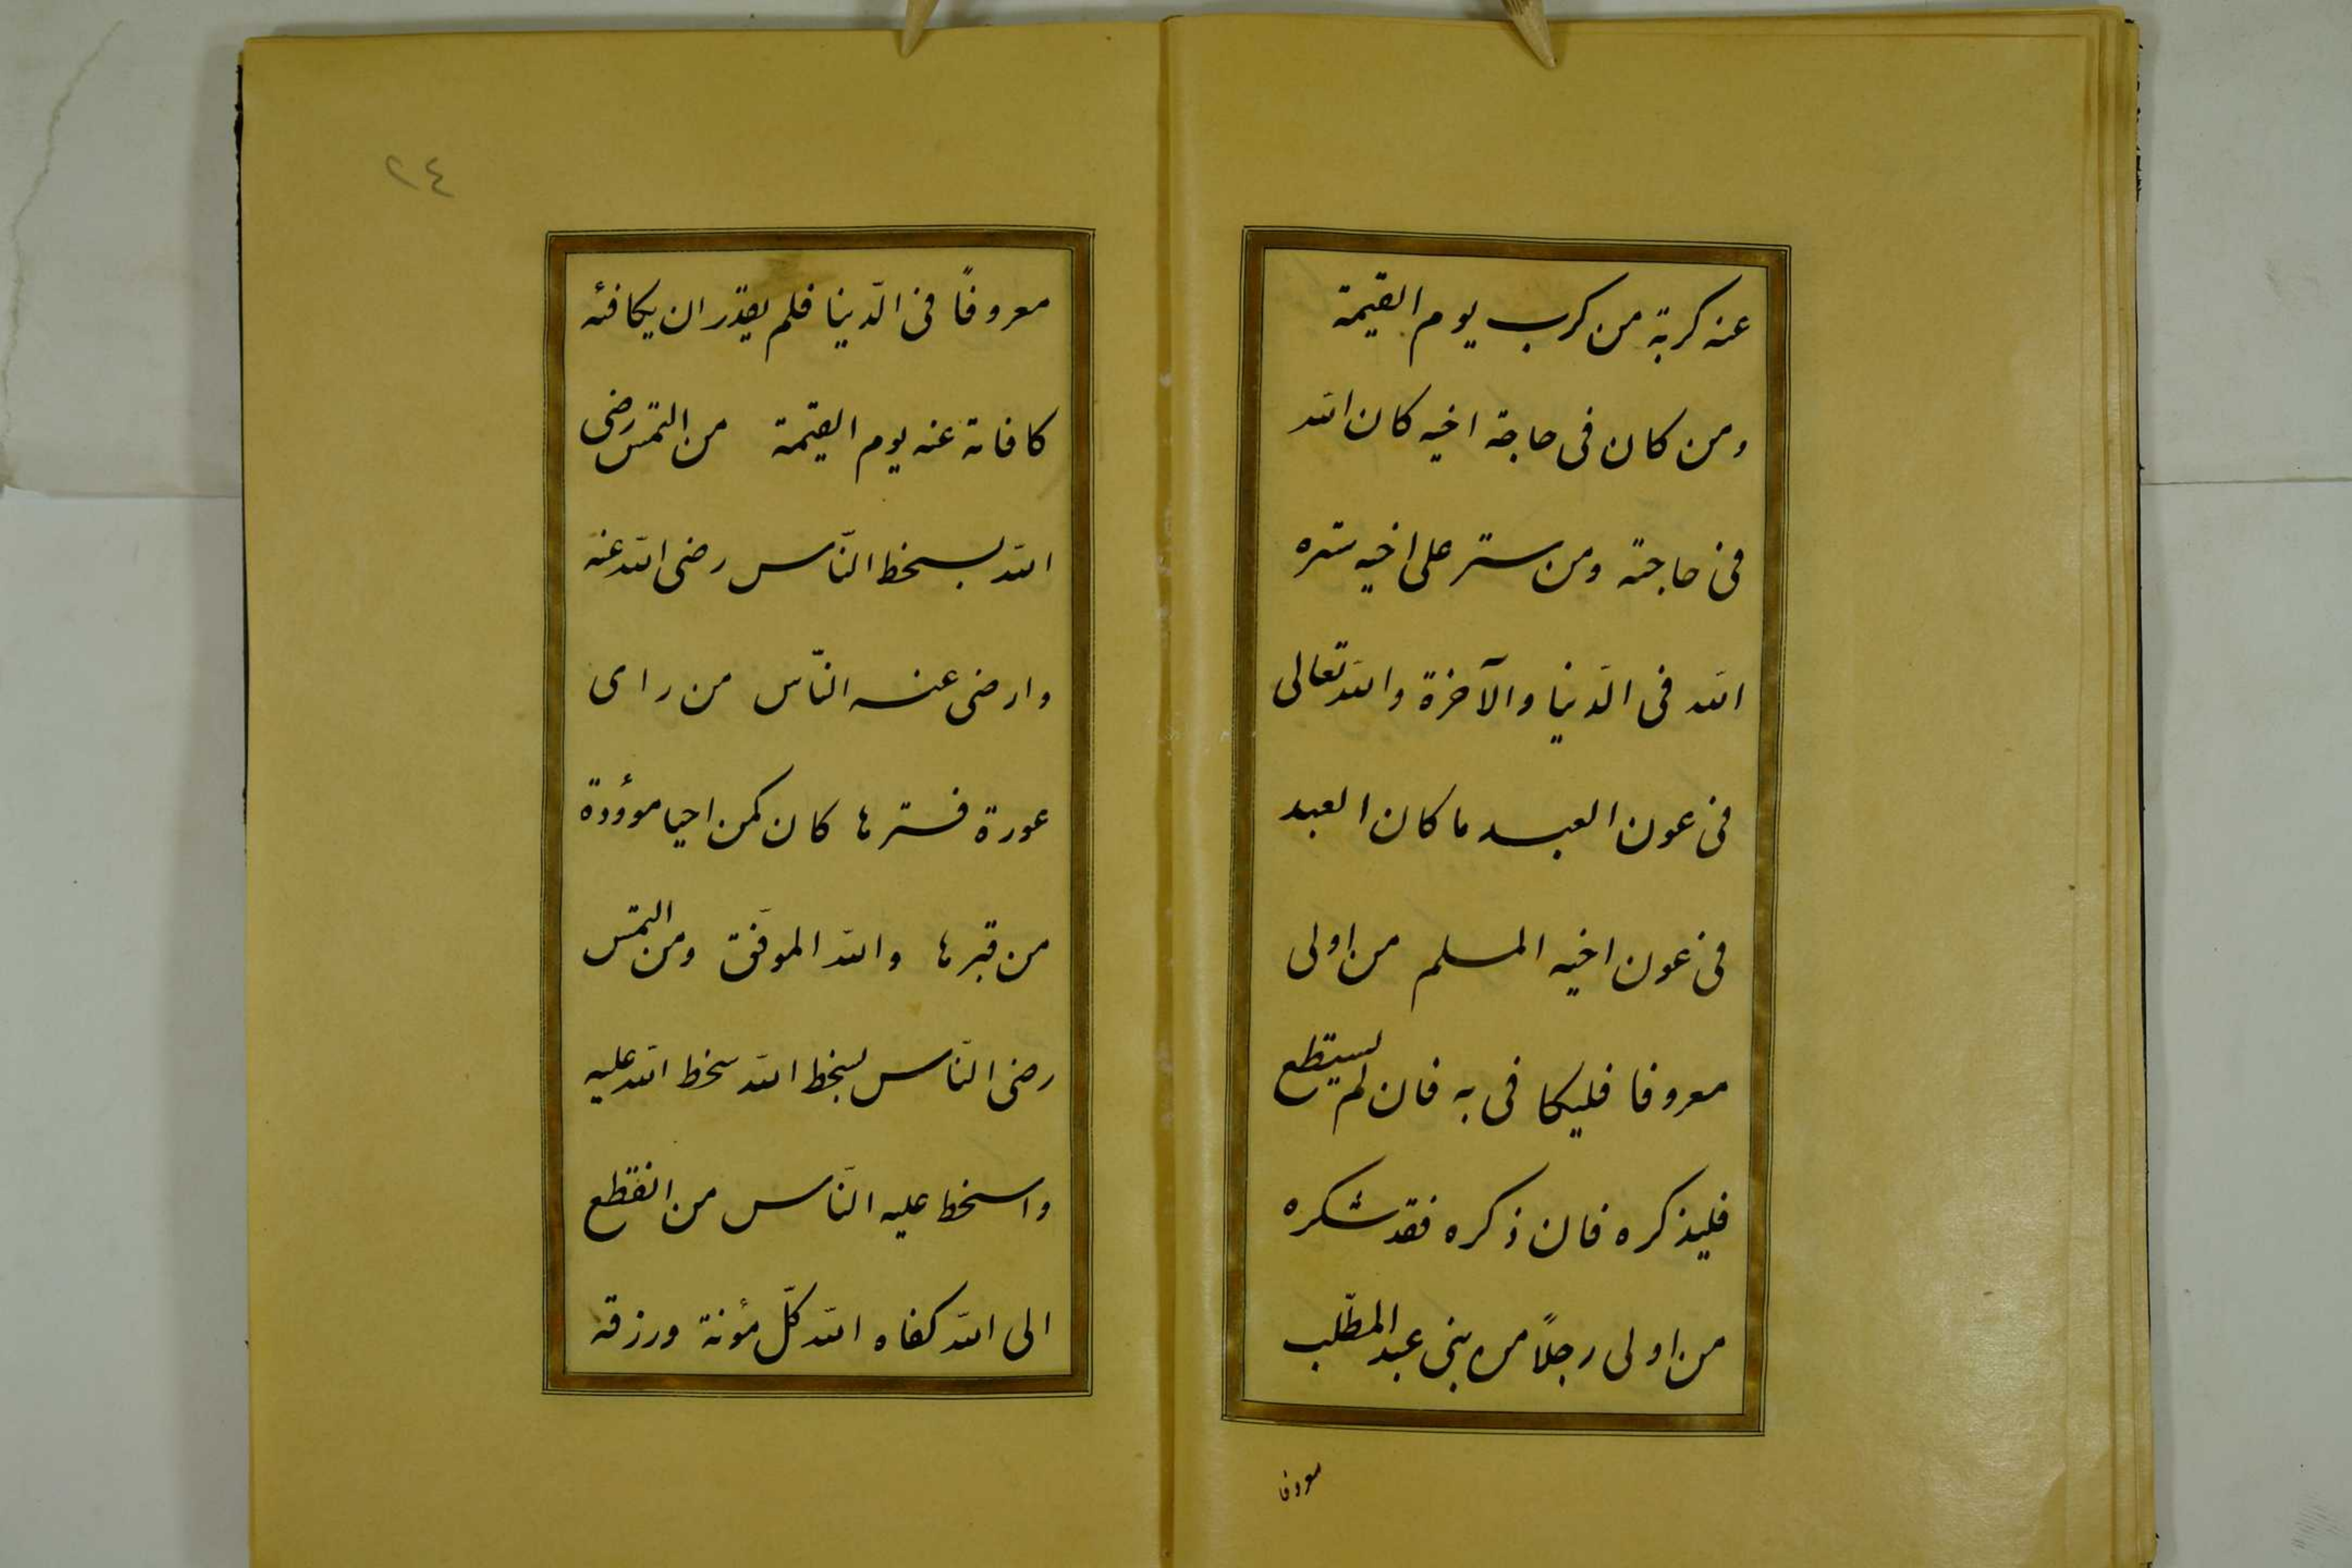 عنه كربة من كرب يوم القيمة
ومن كان فى حاجة اخيه كان الله
فى حاجته ومن ستر على اخيه ستره
الله فى الدّنيا والآخرة والله تعالى
فى عون العبد ما كان العبد
فى عون اخيه المسلم من اولى
معروفا فليكافى به فان لم يستطع
فليذكره فان ذكره فقد شكره
من اولى رجلاً من بنى عبد المطّلب
معروفا
٢٤
معروفاً فى الدّنيا فلم يقدر ان يكافئه
كافاته عنه يوم القيمة من التمس رضى
الله بسخط النّاس رضى الله عنه
وارضى عنه النّاس من راى
عورة فسترها كان كمن احيا موؤدة
من قبرها والله الموفّق ومن التمس
رضى النّاس بسخط الله سخط الله عليه
واسخط عليه النّاس من انقطع
الى الله كفاه الله كلّ مؤنة ورزقه